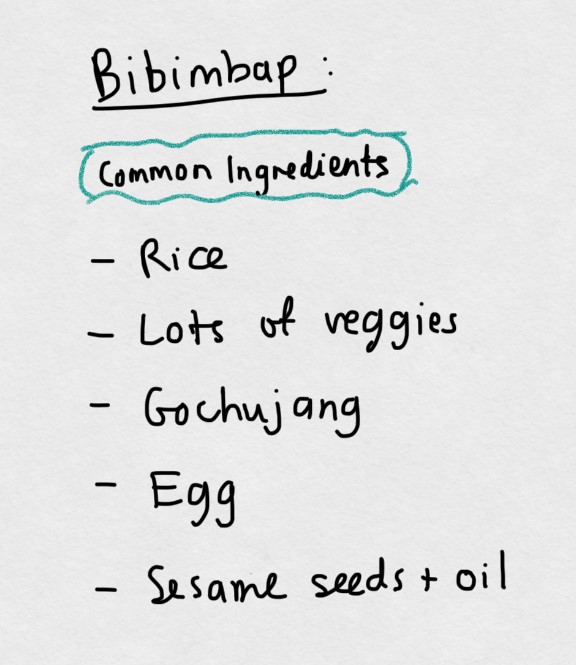 Bibimbap :
Common Ingredients
- Rice
- Lots of veggies
- Gochujang
- Egg
- Sesame seeds + oil